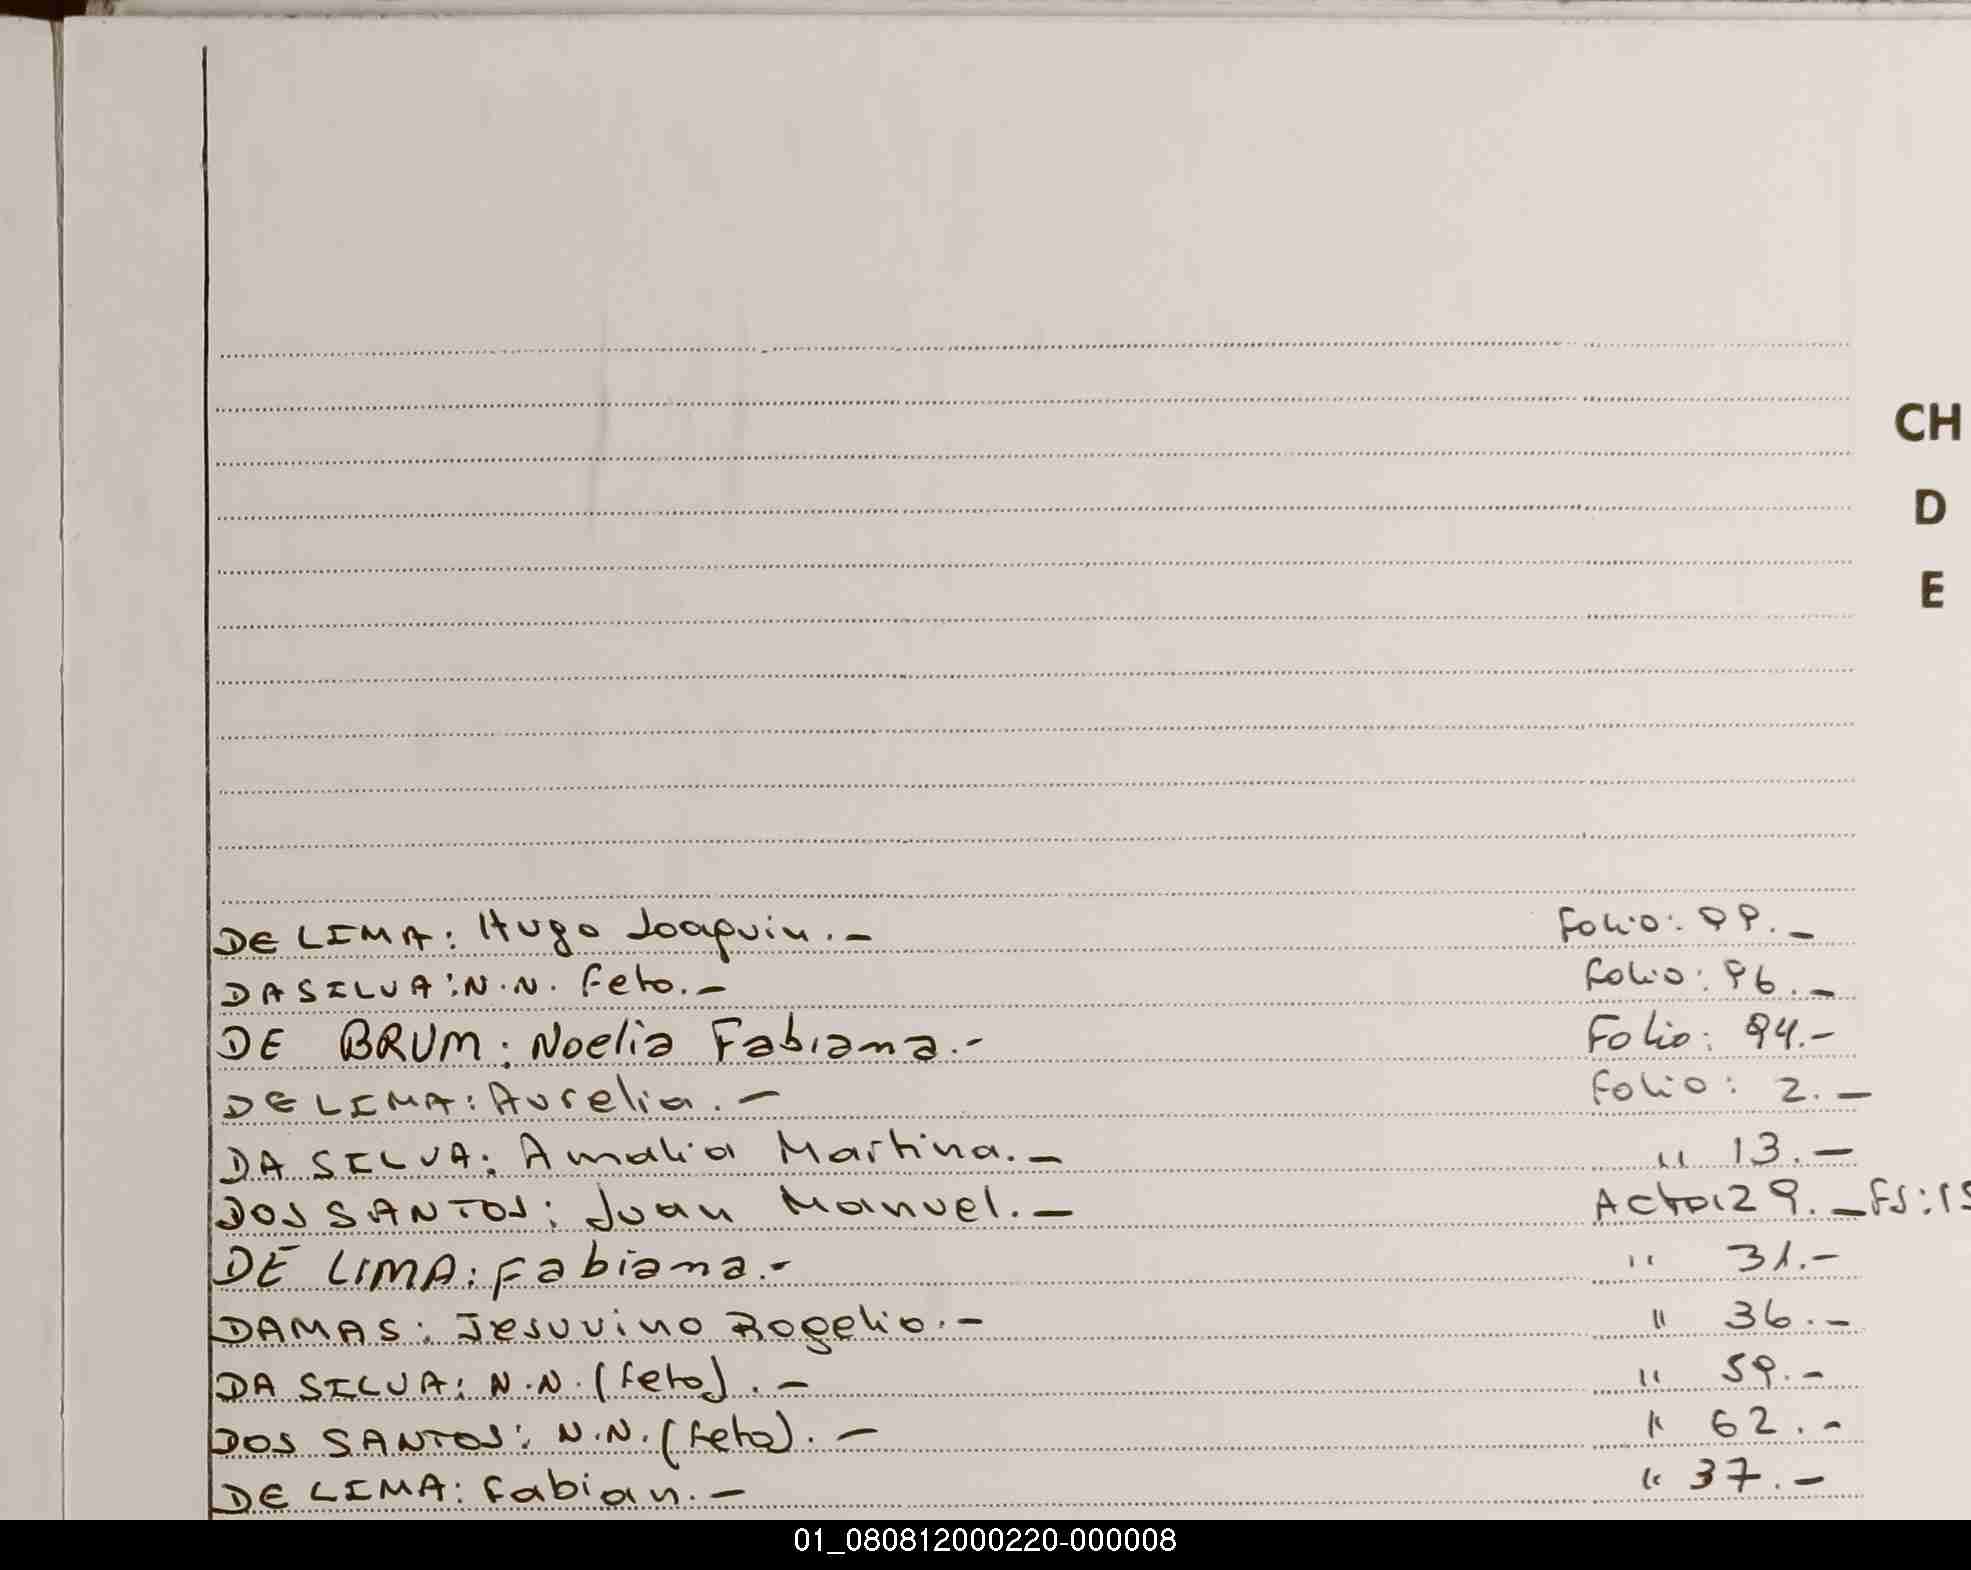 CH
D
E
DE LIMA: Hugo Joaquin.- Folio: 99.-
DA SILVA: N.N. Feto.- Folio: 96.-
DE BRUM: Noelia Fabiana.- Folio: 94.-
DE LIMA: Aurelia.- Folio: 2.-
DA SILVA: Amalia Martina.- " 13.-
DOS SANTOS: Juan Manuel.- Acta: 29.- FS: 15
DE LIMA: Fabiana.- " 31.-
DAMAS: Jesuvino Rogelio.- " 36.-
DA SILVA: N.N. (feto).- " 59.-
DOS SANTOS: N.N. (feto).- " 62.-
DE LIMA: Fabian.- " 37.-
01_080812000220-000008